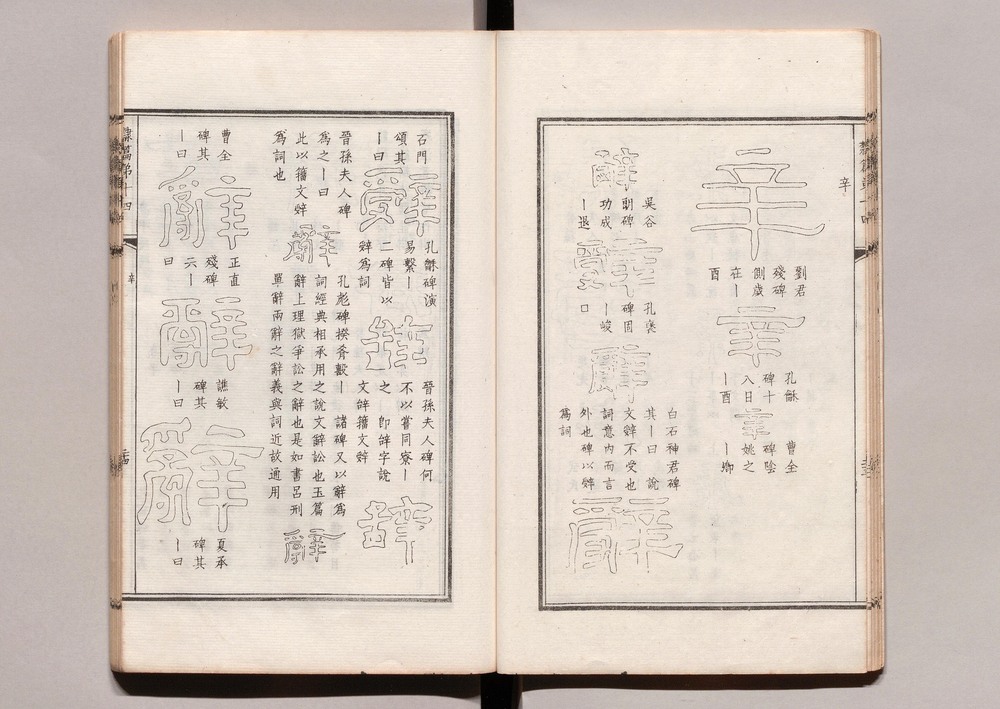 辛
辛
劉君
殘碑
歲
在丨
酉
辛
孔龢
碑十
八日
丨酉
辛
曹全
碑陰
姚之
丨卿
辤
吳谷
朗碑
功成
丨退
辤
孔褒
碑固
丨峻
口
辤
白石神君碑
其丨曰 說
文辤不受也
詞意內而言
外也碑以辤
爲詞
辭
石門
頌其
丨曰
辤
孔龢碑演
易繫丨
二碑皆以
辤爲詞
辝
晉孫夫人碑何
不以嘗同寮丨
之丨卽辝字說
文辝籒文辤
辝
晉孫夫人碑
爲之丨曰
此以籒文辤
爲詞也
辭
孔彪碑揆肴㲉丨 諸碑又以辭爲
詞經典相承用之說文辭訟也玉篇
辭上理獄爭訟之辭也是如書呂刑
單辭兩辭之辭義與詞近故通用
辭
曹全
碑其
丨曰
辭
正直
殘碑
六丨
曰
辭
譙敏
碑其
丨曰
辭
夏承
碑其
丨曰
隸篇第十四
辛